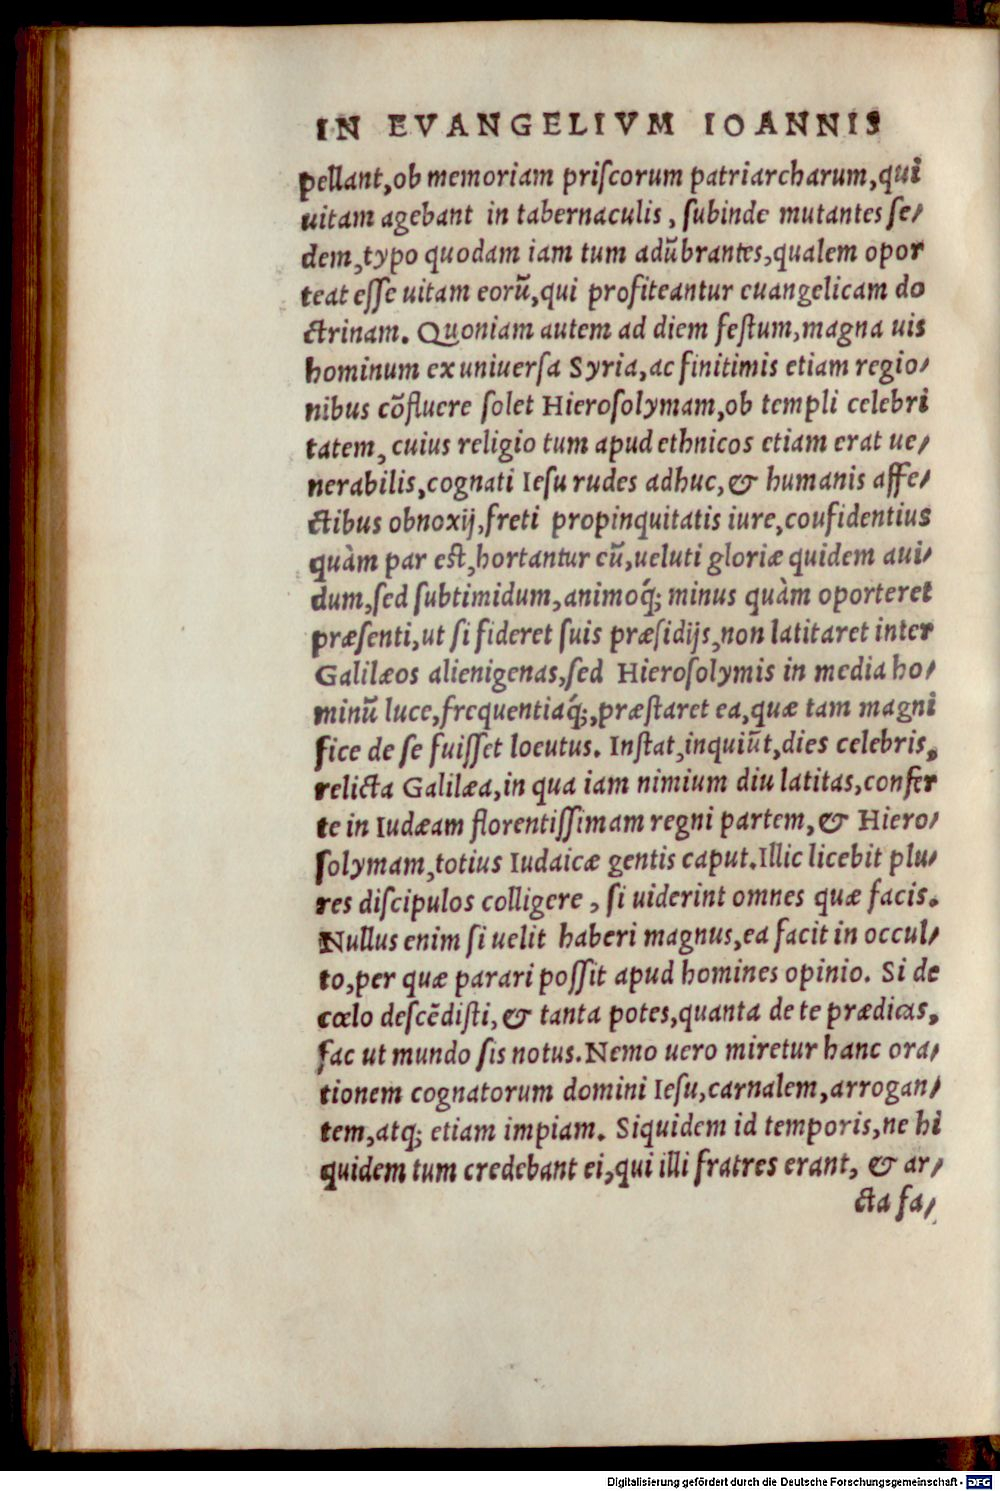 IN EVANGELIVM IOANNIS
pellant,ob memoriam priſcorum patriarcharum,qui
uitam agebant in tabernaculis, ſubinde mutantes ſe⸗
dem,typo quodam iam tum adũbrantes,qualem opor
teat eſſe uitam eorũ,qui profiteantur euangelicam do
ctrinam. Quoniam autem ad diem feſtum,magna uis
hominum ex uniuerſa Syria,ac finitimis etiam regio⸗
nibus cõfluere ſolet Hieroſolymam,ob templi celebri
tatem, cuius religio tum apud ethnicos etiam erat ue⸗
nerabilis,cognati Ieſu rudes adhuc,& humanis affe⸗
ctibus obnoxij,freti propinquitatis iure,coufidentius
quàm par eſt,hortantur eũ,ueluti gloriæ quidem aui⸗
dum,ſed ſubtimidum,animoq́; minus quàm oporteret
præſenti,ut ſi fideret ſuis præſidijs,non latitaret inter
Galilæos alienigenas,ſed Hieroſolymis in media ho⸗
minũ luce,frequentiaq́;,præſtaret ea,quæ tam magni
fice de ſe fuiſſet locutus. Inſtat,inquiũt,dies celebris,
relicta Galilæa,in qua iam nimium diu latitas,confer
te in Iudæam florentiſſimam regni partem,& Hiero⸗
ſolymam,totius Iudaicæ gentis caput.Illic licebit plu⸗
res diſcipulos colligere, ſi uiderint omnes quæ facis.
Nullus enim ſi uelit haberi magnus,ea facit in occul⸗
to,per quæ parari poſſit apud homines opinio. Si de
cœlo deſcẽdiſti,& tanta potes,quanta de te prædicas,
fac ut mundo ſis notus.Nemo uero miretur hanc ora⸗
tionem cognatorum domini Ieſu,carnalem,arrogan⸗
tem,atq; etiam impiam. Siquidem id temporis,ne hi
quidem tum credebant ei,qui illi fratres erant, & ar⸗
cta fa⸗
Digitalisierung gefördert durch die Deutsche Forschungsgemeinschaft - DFG